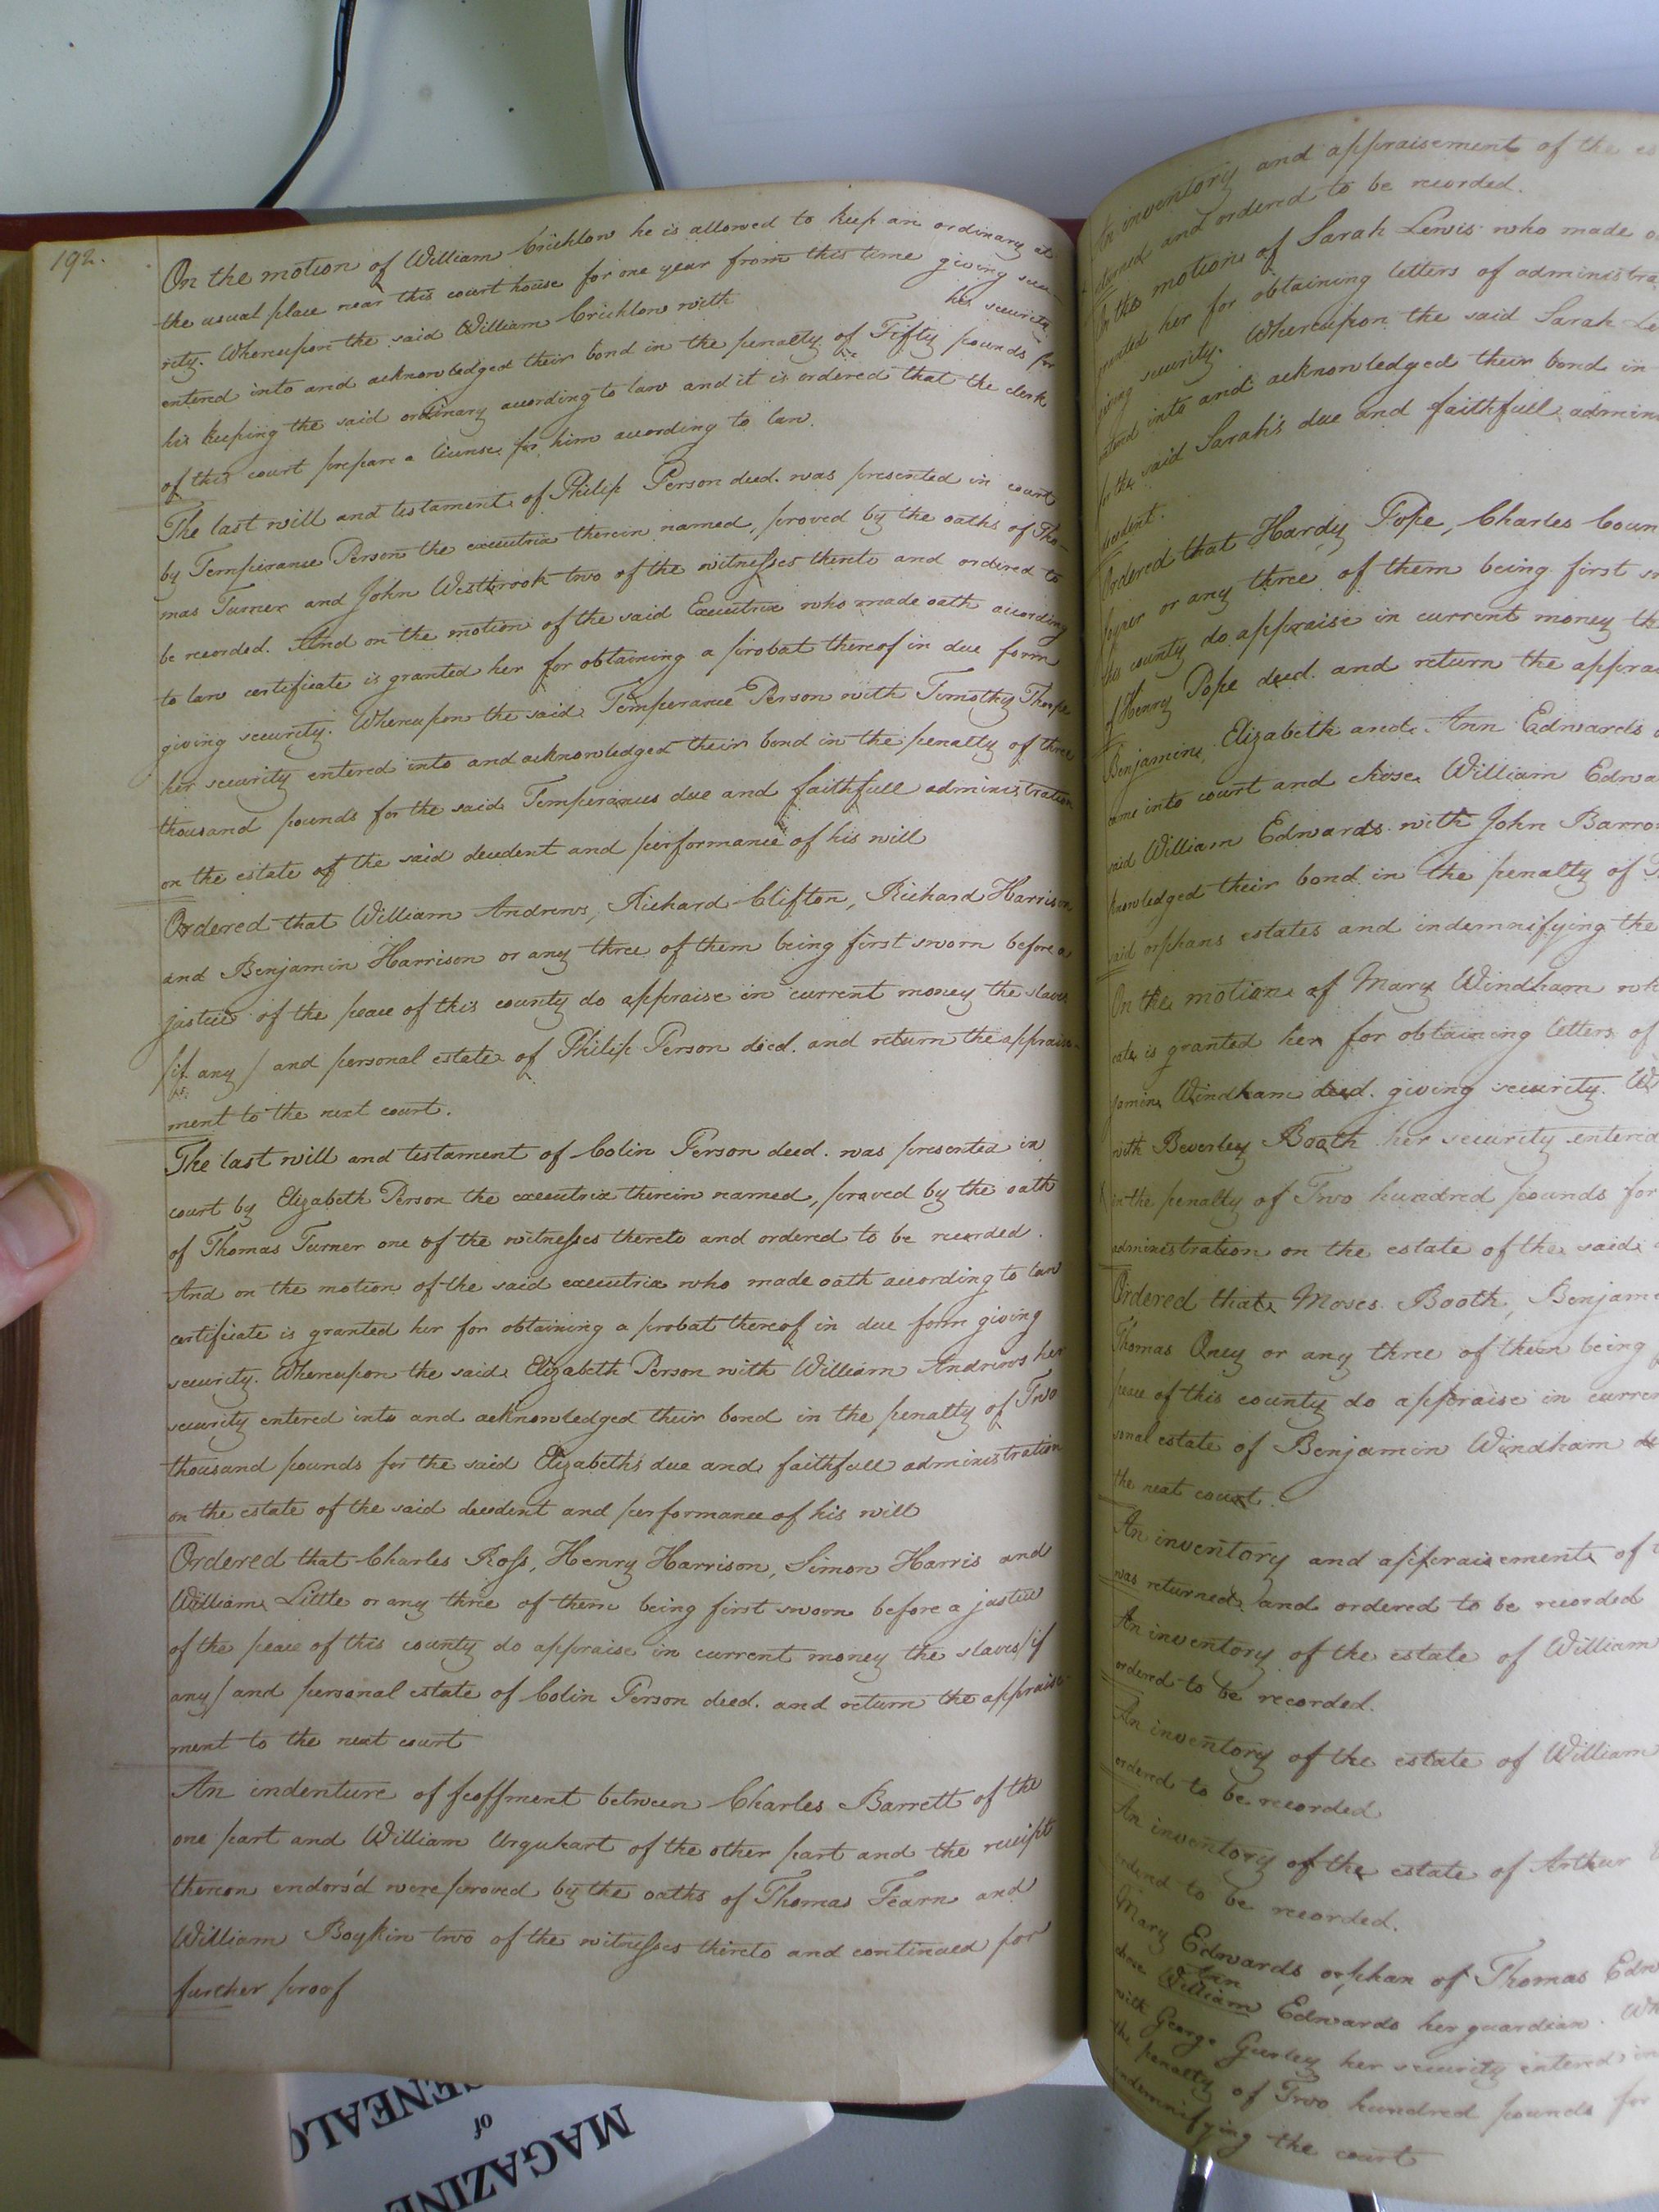 192.
On the motion of William Crichlow he is allowed to keep an ordinary at
the usual place near this court house for one year from this time giving secu-
rity. Whereupon the said William Crichlow with his security
entered into and acknowledged their bond in the penalty of Fifty pounds for
his keeping the said ordinary according to law and it is ordered that the clerk
of this court prepare a license for him according to law.
The last will and testament of Philip Person deced. was presented in court
by Temperance Person the executrix therein named, proved by the oaths of Tho-
mas Turner and John Westbrook two of the witnesses thereto and ordered to
be recorded. And on the motion of the said Executrix who made oath according
to law certificate is granted her for obtaining a probat thereof in due form
giving security. Whereupon the said Temperance Person with Timothy Thorpe
her security entered into and acknowledged their bond in the penalty of three
thousand pounds for the said Temperances due and faithfull administration
on the estate of the said decedent and performance of his will
Ordered that William Andrews, Richard Clifton, Richard Harrison
and Benjamin Harrison or any three of them being first sworn before a
justice of the peace of this county do appraise in current money the slaves
/if any/ and personal estate of Philip Person deced. and return the appraise-
ment to the next court.
The last will and testament of Colin Person deced. was presented in
court by Elizabeth Person the executrix therein named, proved by the oath
of Thomas Turner one of the witnesses thereto and ordered to be recorded.
And on the motion of the said executrix who made oath according to law
certificate is granted her for obtaining a probat thereof in due form giving
security. Whereupon the said Elizabeth Person with William Andrews her
security entered into and acknowledged their bond in the penalty of Two
thousand pounds for the said Elizabeth's due and faithfull administration
on the estate of the said decedent and performance of his will
Ordered that Charles Ross, Henry Harrison, Simon Harris and
William Little or any three of them being first sworn before a justice
of the peace of this county do appraise in current money the slaves /if
any/ and personal estate of Colin Person deced. and return the appraise-
ment to the next court
An indenture of feoffment between Charles Barrett of the
one part and William Urquhart of the other part and the receipt
thereon endors'd were proved by the oaths of Thomas Fearn and
William Boykin two of the witnesses thereto and continued for
further proof
An inventory and appraisement of the es
returned and ordered to be recorded.
On the motion of Sarah Lewis who made o
granted her for obtaining letters of administra
giving security. Whereupon the said Sarah Le
entered into and acknowledged their bond in
for the said Sarah's due and faithfull admin
decedent.
Ordered that Hardy Pope, Charles Coun
or any three of them being first s
this county do appraise in current money th
of Henry Pope deced. and return the apprai
Benjamin, Elizabeth and Ann Edwards
came into court and chose William Edwa
said William Edwards with John Barro
knowledged their bond in the penalty of
said orphans estates and indemnifying the
On the motion of Mary Windham wh
cate is granted her for obtaining letters of
jamin Windham deced. giving security. W
with Beverley Booth her security entered
in the penalty of Two hundred pounds for
administration on the estate of the said
Ordered that Moses Booth, Benjam
Thomas Oney or any three of them being
peace of this county do appraise in curren
sonal estate of Benjamin Windham de
the next court.
An inventory and appraisement of
was returned and ordered to be recorded
An inventory of the estate of William
ordered to be recorded.
An inventory of the estate of William
ordered to be recorded
An inventory of the estate of Arthur
ordered to be recorded.
Mary Edwards orphan of Thomas Edw
Ann
chose William Edwards her guardian. Wh
with George Gurley her security entered in
the penalty of Two hundred pounds for
indemnifying the court
MAGAZINE
of
GENEALO